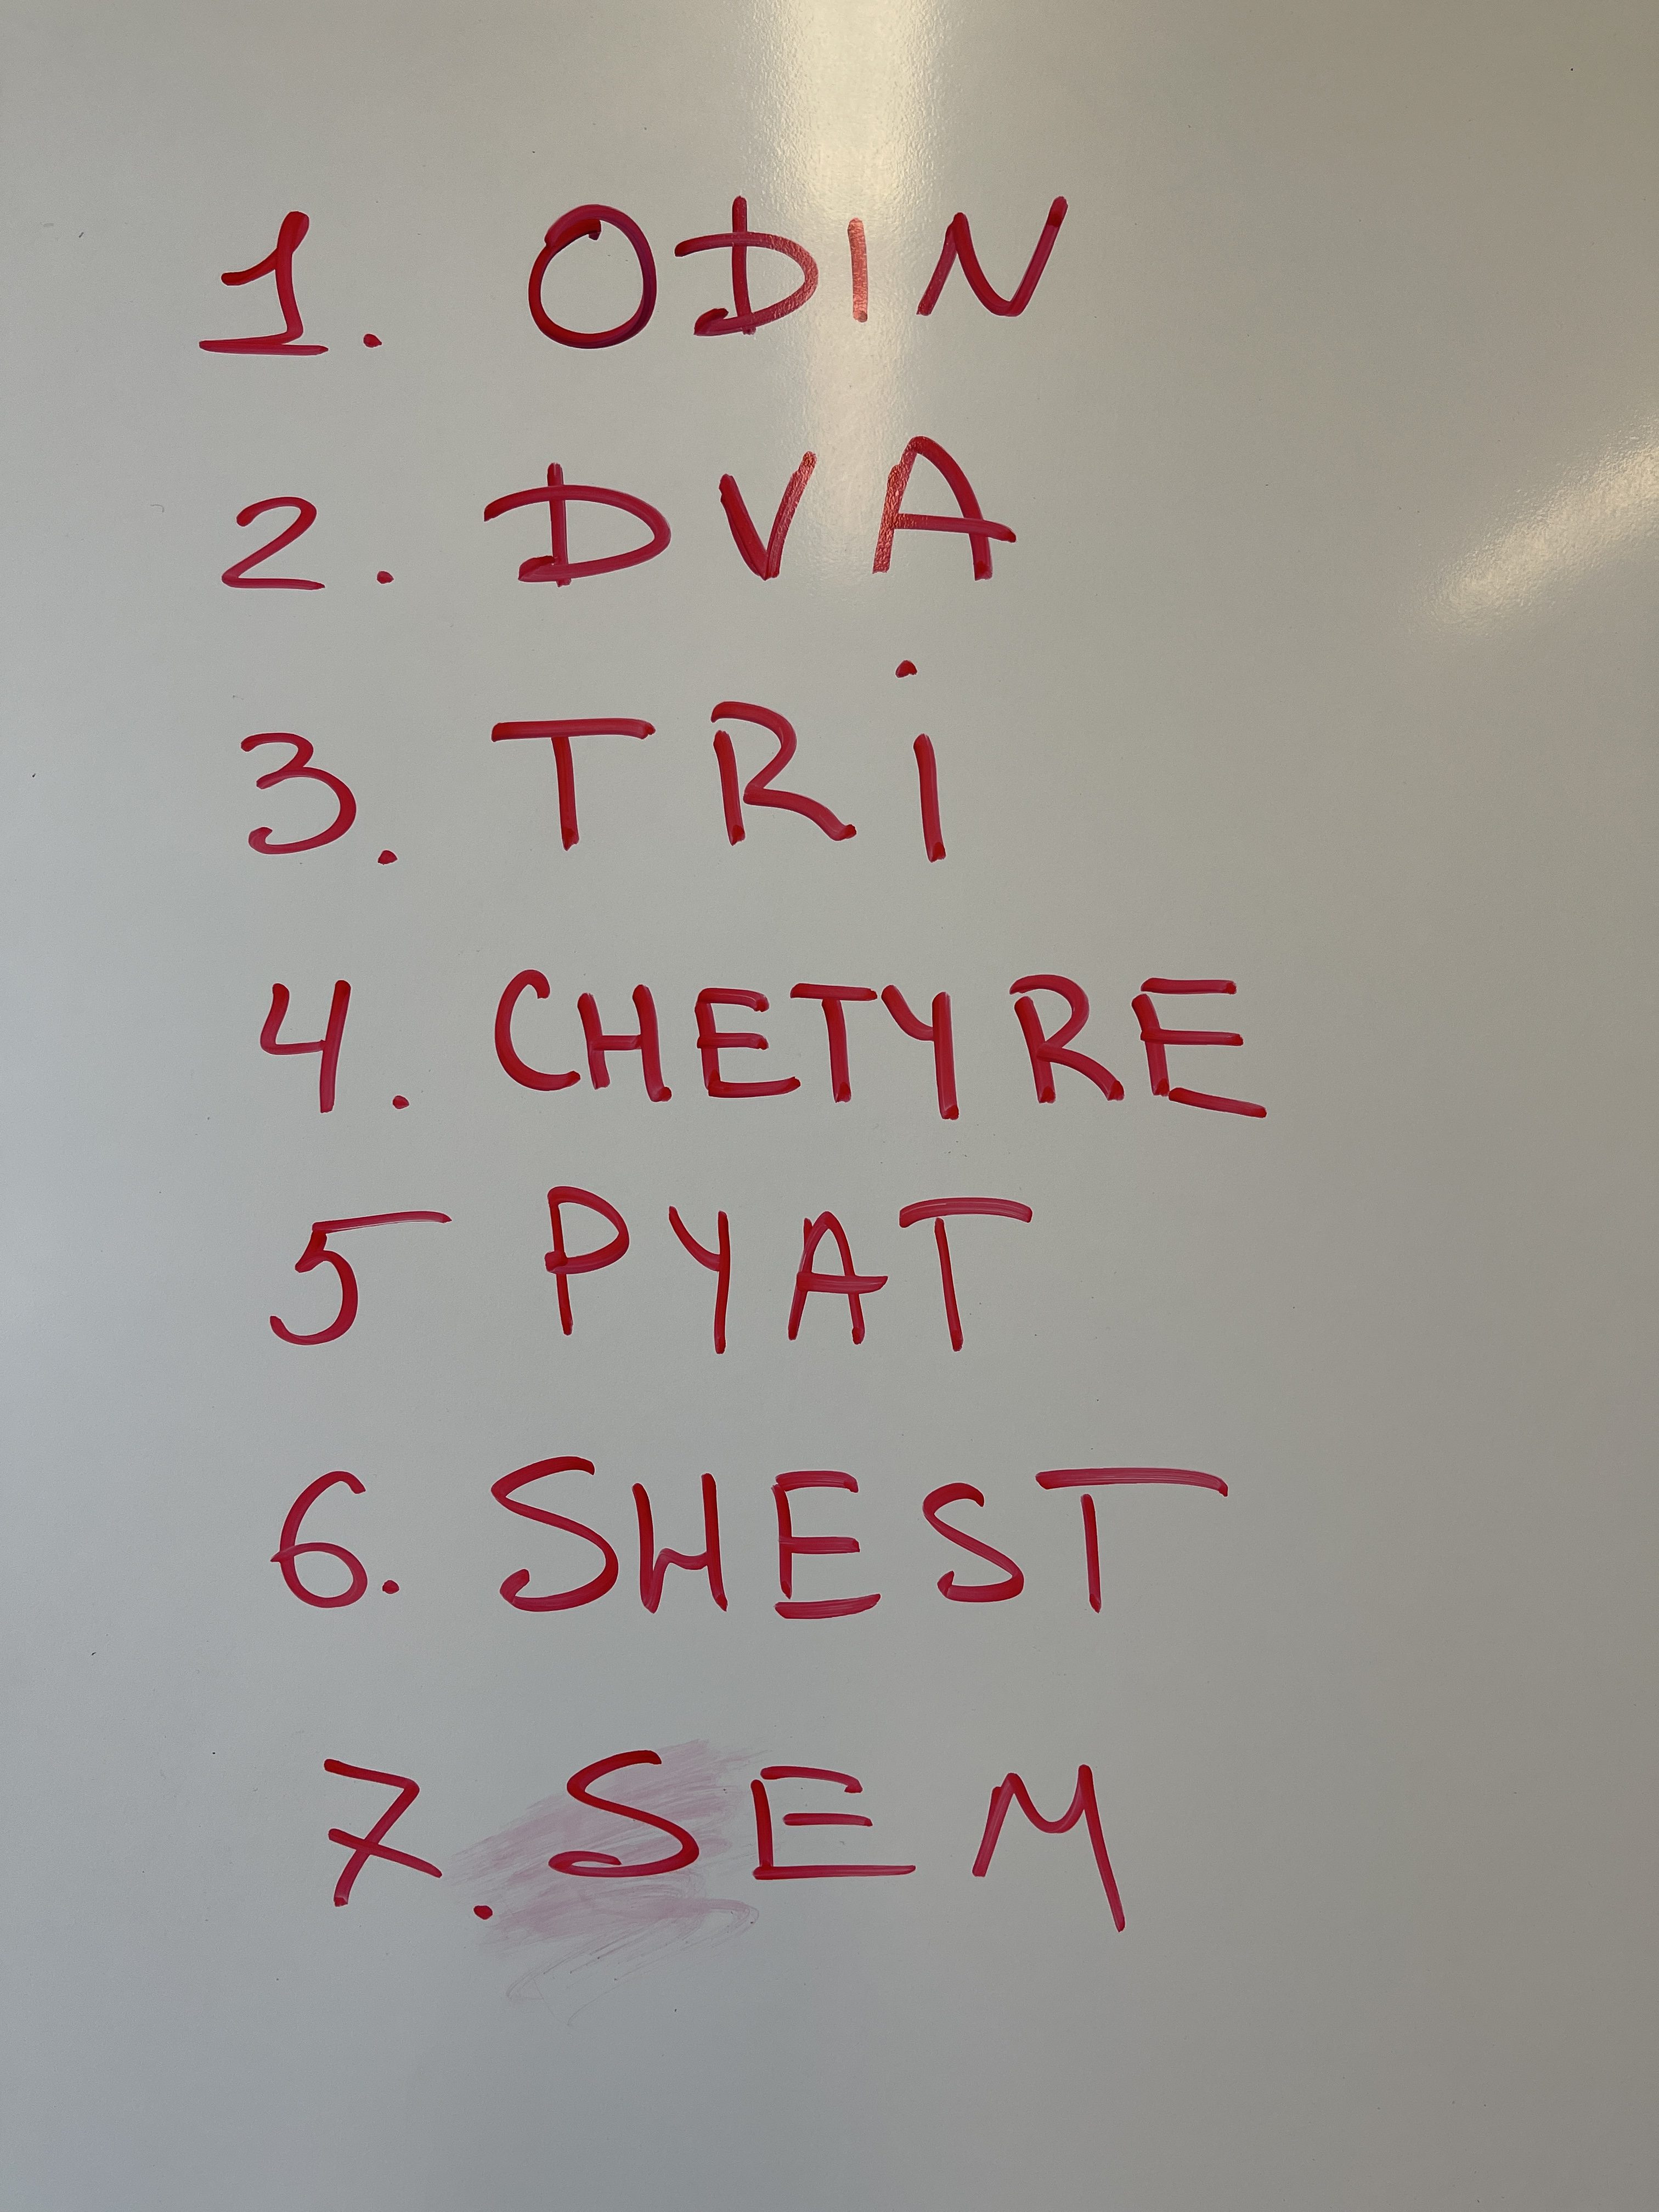 1. ODIN
2. DVA
3. TRi
4. CHETYRE
5 PYAT
6. SHEST
7. SEM